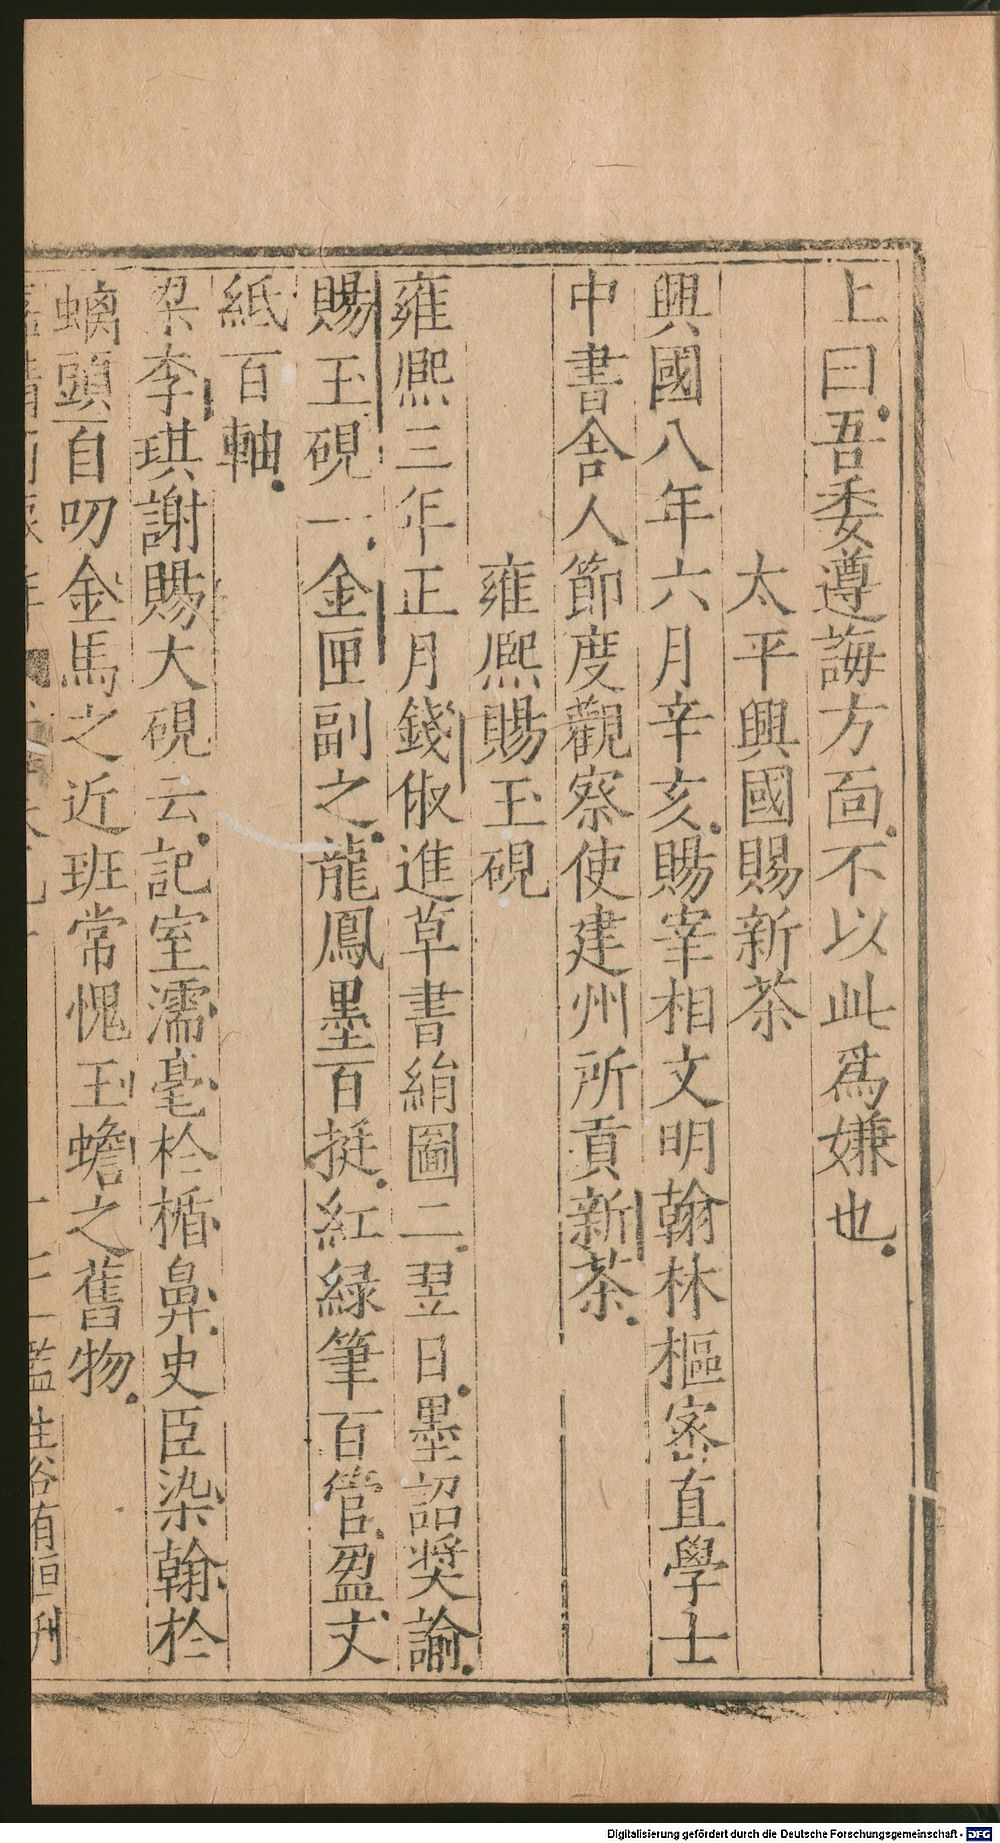 上曰吾委遵誨方面不以此爲嫌也
太平興國賜新茶
興國八年六月辛亥賜宰相文明翰林樞密直學士
中書舍人節度觀察使建州所貢新茶
雍熈賜玉硯
雍熈三年正月錢俶進草書絹圖二翌日墨詔奬諭
賜玉硯一金匣副之龍鳳墨百挺紅緑筆百管盈丈
紙百軸
梁李琪謝賜大硯云記室濡毫於楯鼻史臣染翰於
螭頭自叨金馬之近班常愧玉蟾之舊物
生谷有恒刋
Digitalisierung gefördert durch die Deutsche Forschungsgemeinschaft - DFG